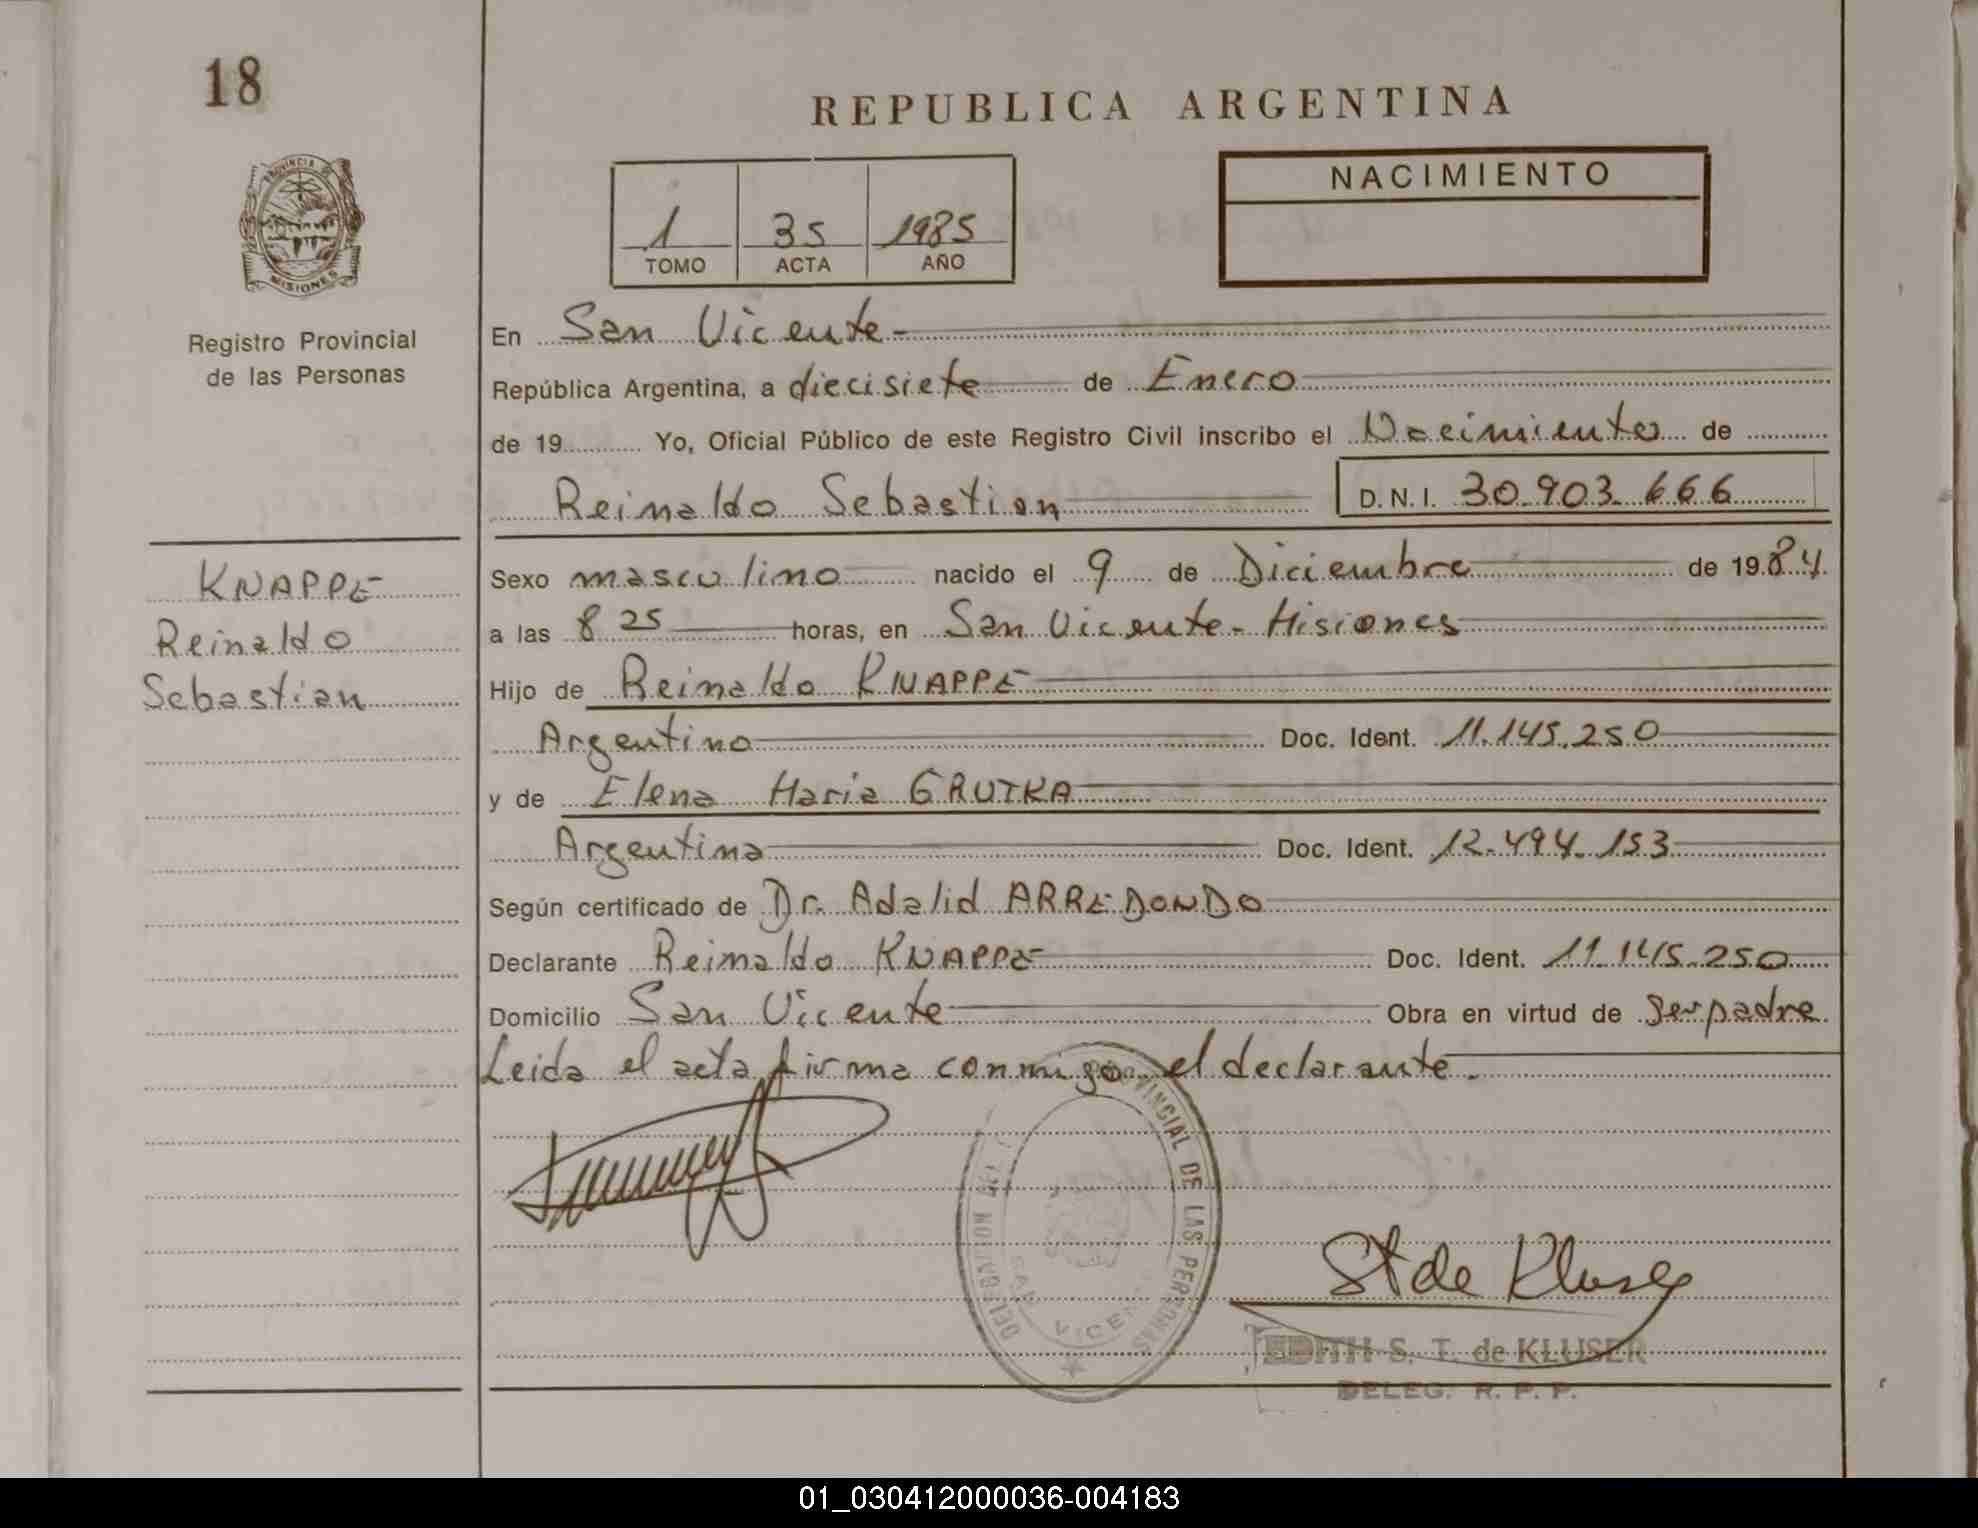 18
REPUBLICA ARGENTINA
PROVINCIA DE
MISIONES
Registro Provincial
de las Personas
1 35 1985
TOMO ACTA AÑO
NACIMIENTO
En San Vicente
República Argentina, a diecisiete de Enero
de 19 Yo, Oficial Público de este Registro Civil inscribo el Nacimiento de
Reinaldo Sebastian D.N.I. 30.903.666
KNAPPE
Reinaldo
Sebastian
Sexo masculino nacido el 9 de Diciembre de 1984.
a las 8 25 horas, en San Vicente - Misiones
Hijo de Reinaldo KNAPPE
Argentino Doc. Ident. 11.145.250
y de Elena Maria GRUTKA
Argentina Doc. Ident. 12.494.153
Según certificado de Dr. Adalid ARREDONDO
Declarante Reinaldo KNAPPE Doc. Ident. 11.145.250
Domicilio San Vicente Obra en virtud de ser padre
Leida el acta firma conmigo el declarante.
DELEGACION PROVINCIAL DE LAS PERSONAS
SAN VICENTE
St de Kluser
EDITH S. T. de KLUSER
DELEG. R. P. P.
01_030412000036-004183